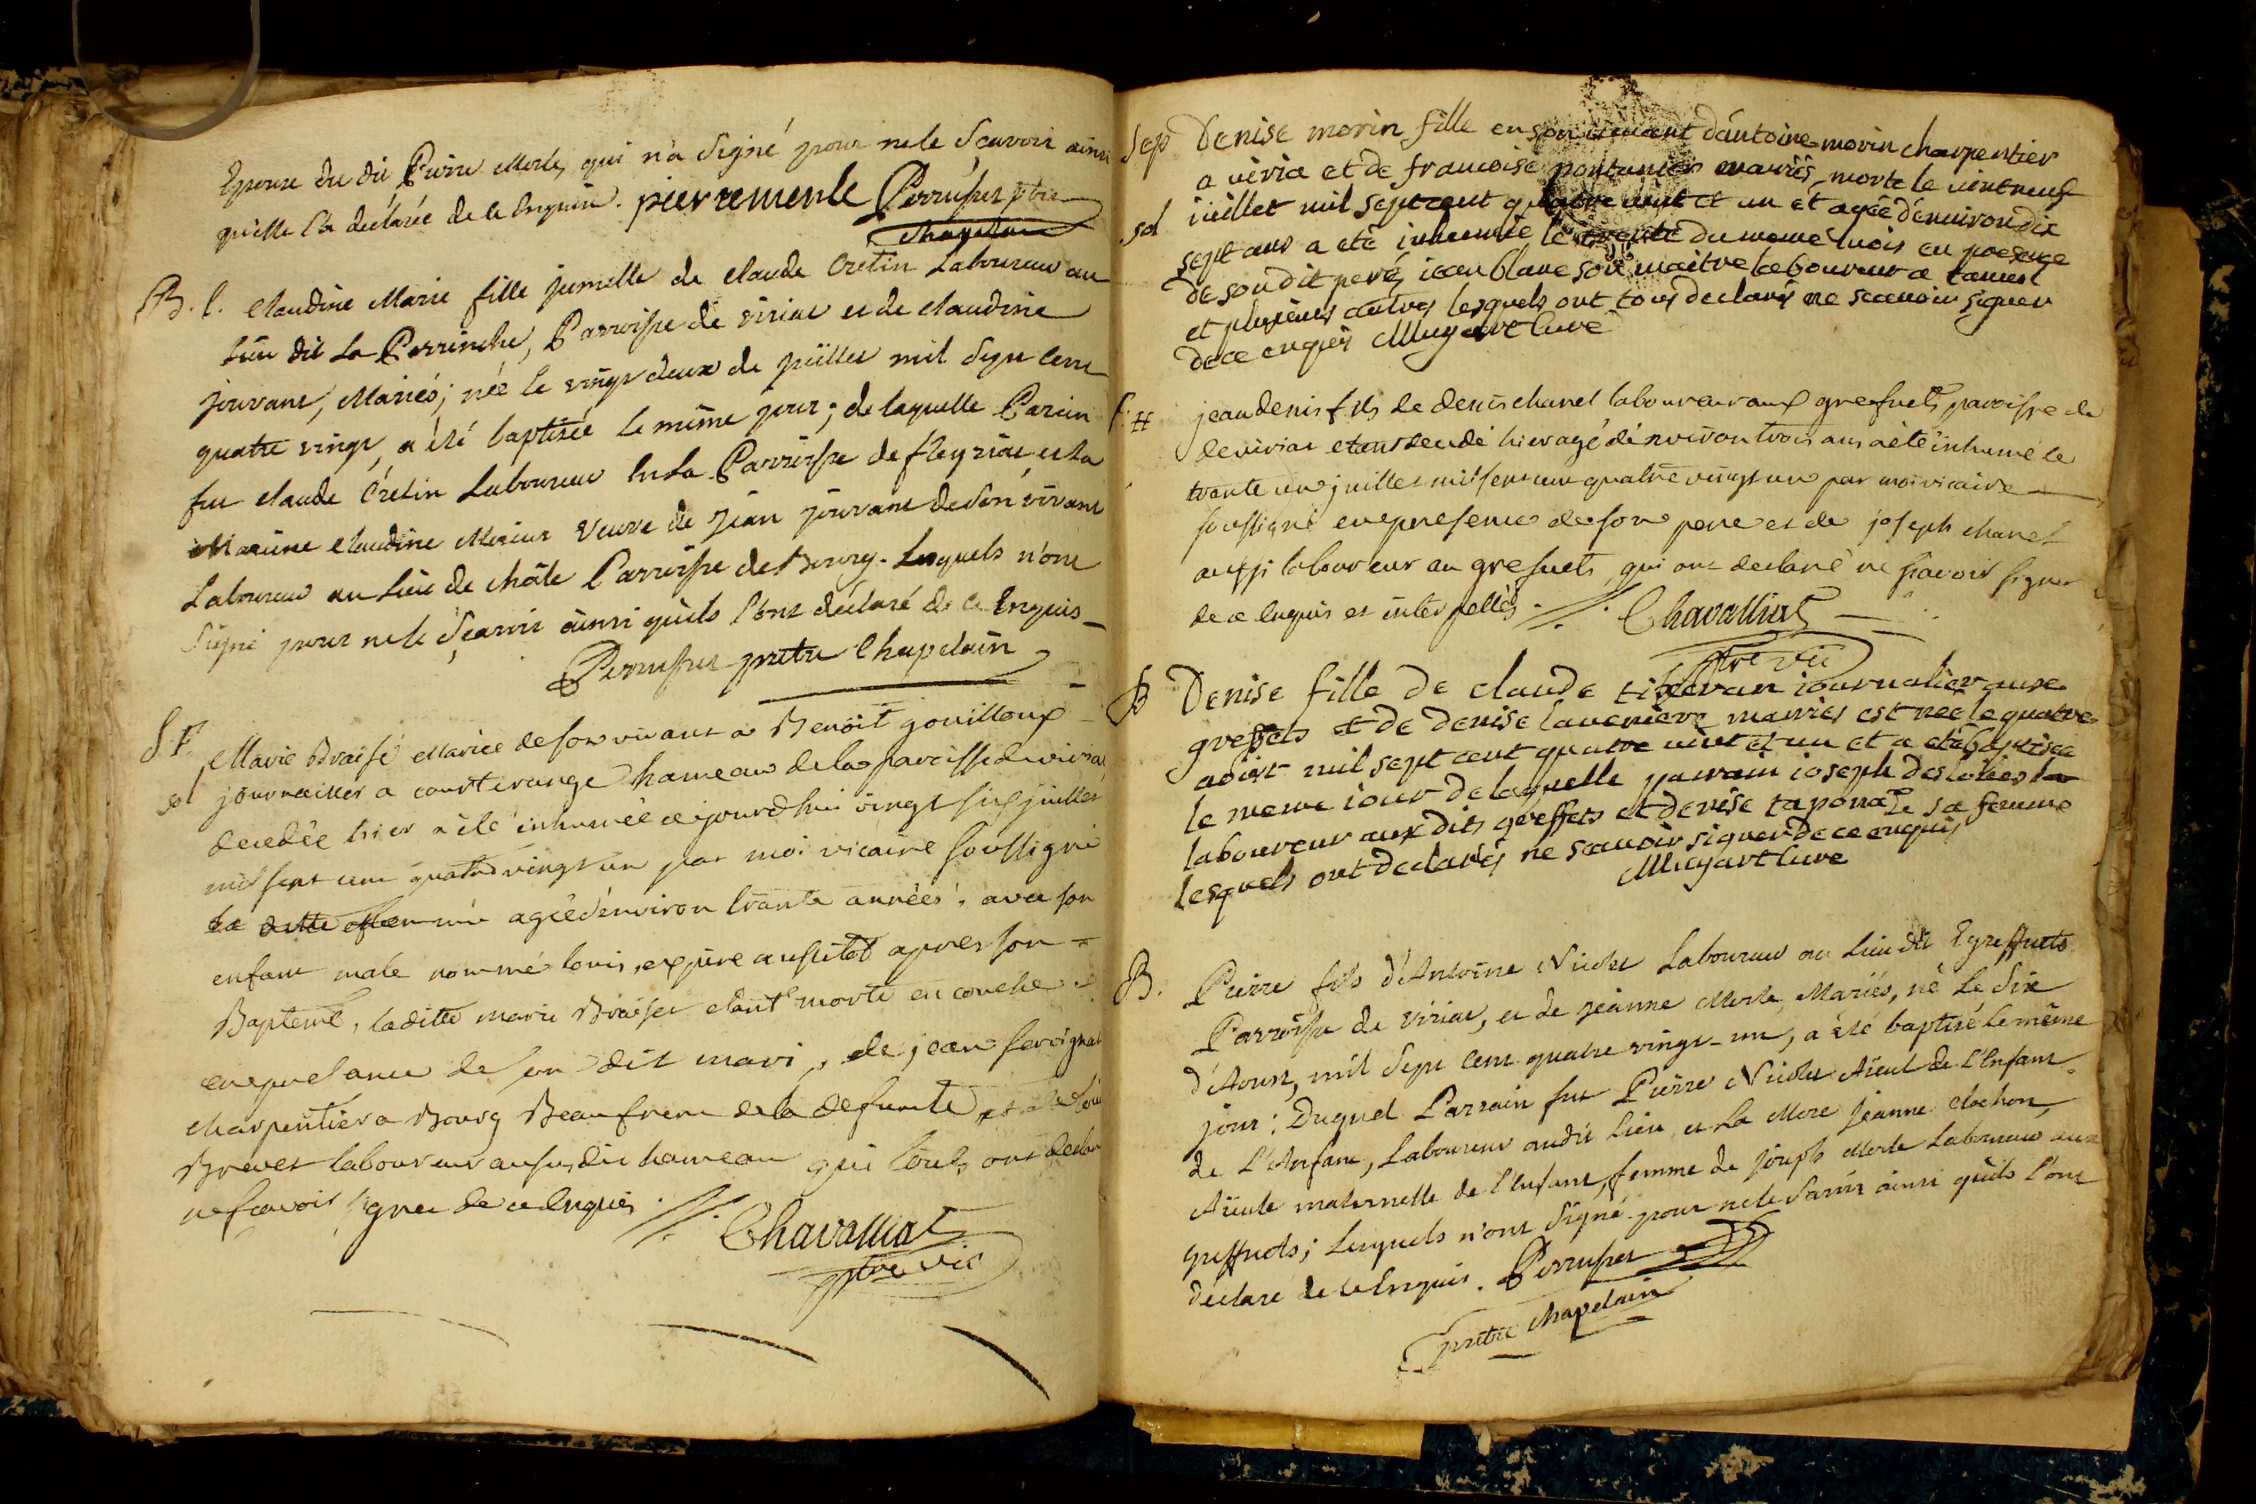 Epouse du dit Pierre Merle, qui n'a signé pour ne le sçavoir ainsi
qu'elle l'a declarée de ce enquise. pierre merle Perruset ptre
chapelain
B. l. claudine Marie fille jumelle de claude Cretin Laboureur au
Lieu dit La Perrinche, Parroisse de viriat et de claudine
jouvant, Mariés; née le vingt deux de juillet mil Sept Cent
quatre vingt, a été baptisée le même jour; de laquelle Parain
fut claude Crétin Laboureur En La Parroisse de fleyriat et La
Maraine claudine veuve de jean jouvant de son vivant
Laboureur au Lieu de châle Parroisse de Bourg. Lesquels n'ont
signé pour ne le sçavoir ainsi qu'ils l'ont déclaré de ce Enquis
Perruset prêtre Chapelain
S F. Marie Braisé Mariée de son vivant a Benoit gouilloux
sol journailier a courterange hameau de la paroisse de viriat
decedée hier a été inhumée ce jourd'hui vingt six juillet
mil sept cent quatre vingt un par moi vicaire soussigné
la ditte agée d'environ trante années, avec son
enfant male nommé louis, expiré aussitot apres son
Bapteme, laditte marie Braisé etant morte en couche
en presance de son dit mari, de jean
charpentier a Bourg Beaufrere de la defunte, et de
Brevet laboureur au susdit hameau qui tous ont declaré
ne sçavoir signer de ce enquis //. Chavalliat
ptre vic
sep Denise morin fille en son vivant d'antoine morin charpentier
a viria et de francoise pontanier mariés, morte le vintneuf
sol iuillet mil sept cent quatre vint et un et agée d'environ dix
sept ans a eté inhumée le trente du meme mois en presence
de son dit pere, iean blanc son maitre laboureur a
et plusieurs autres lesquels ont tous declarés ne scavoir signer
de ce enquis Mugart Curé
f. H jean denis fils de denis chanel laboureur aux grefuets, paroisse de
de viriat etant decedé hier agé d'environ trois ans a été inhumé le
trante un juillet mil sept cent quatre vingt un par moi vicaire
soussigné en presence de son pere et de joseph chanel
aussi laboureur au grefuets, qui ont declaré ne sçavoir signer
de ce enquis et interpellés. //. Chavalliat
ptre vic
B Denise fille de claude tisseran iournalier aux
greffets et de Denise laveniere mariés est née le quatre
aoist mil sept cent quatre vint et un et a eté baptisée
le meme iour de laquelle parain ioseph
laboureur aux dits greffets et denise taponat sa femme
lesquels ont declarés ne scavoir signer de ce enquis
Mugart Cure
B. Pierre fils d'Antoine Nicolet Laboureur au Lieu dit Egreffuets
Parroisse de viriat, et de jeanne Merle, Mariés, né le Six
d'Aoust, mil Sept Cent quatre vingt-un, a été baptisé le même
jour; Duquel Parrain fut Pierre Nicolet Aïeul de l'Enfant
de L'Anfant, Laboureur au dit Lieu et La Mere jeanne clochon,
Aïeule maternelle de l'Enfant, femme de joseph Merle Laboureur aux
greffuets; Lesquels n'ont Signé pour ne le sçavoir ainsi qu'ils l'ont
déclaré de ce Enquis. Perruset
prêtre chapelain